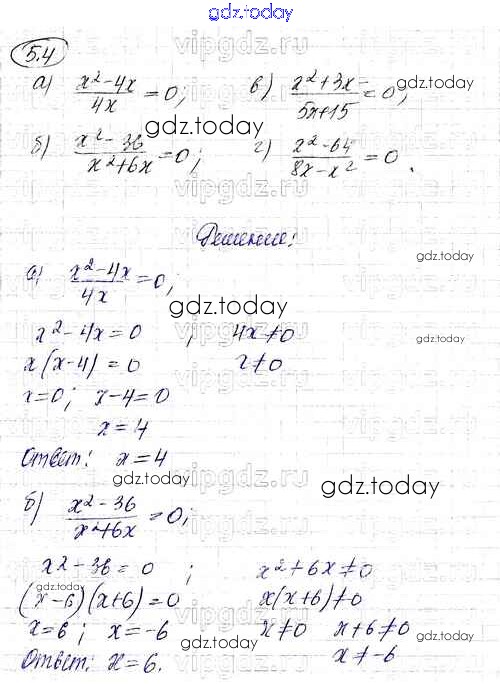 gdz.today
5.4
а) (x²-4x)/(4x) = 0; в) (x²+3x)/(5x+15) = 0;
б) (x²-36)/(x²+6x) = 0; г) (x²-64)/(8x-x²) = 0.
Решение:
а) (x²-4x)/(4x) = 0;
x²-4x=0 ; 4x≠0
x(x-4)=0 x≠0
x=0; x-4=0
x=4
Ответ: x=4
б) (x²-36)/(x²+6x) = 0;
x²-36=0 ; x²+6x≠0
(x-6)(x+6)=0 x(x+6)≠0
x=6; x=-6 x≠0 x+6≠0
Ответ: x=6. x≠-6